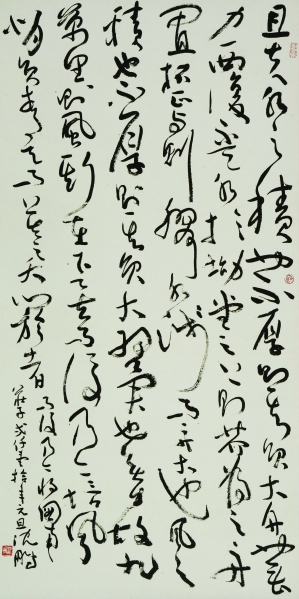 且夫水之積也不厚則其負大舟也無
力覆盃水於坳堂之上則芥為之舟
置杯焉則膠水淺而舟大也風之
積也不厚則其負大翼也無力故九
萬里則風斯在下矣而後乃今培風
背負青天而莫之夭閼者而後乃今將圖南
莊子 年元旦沈鵬